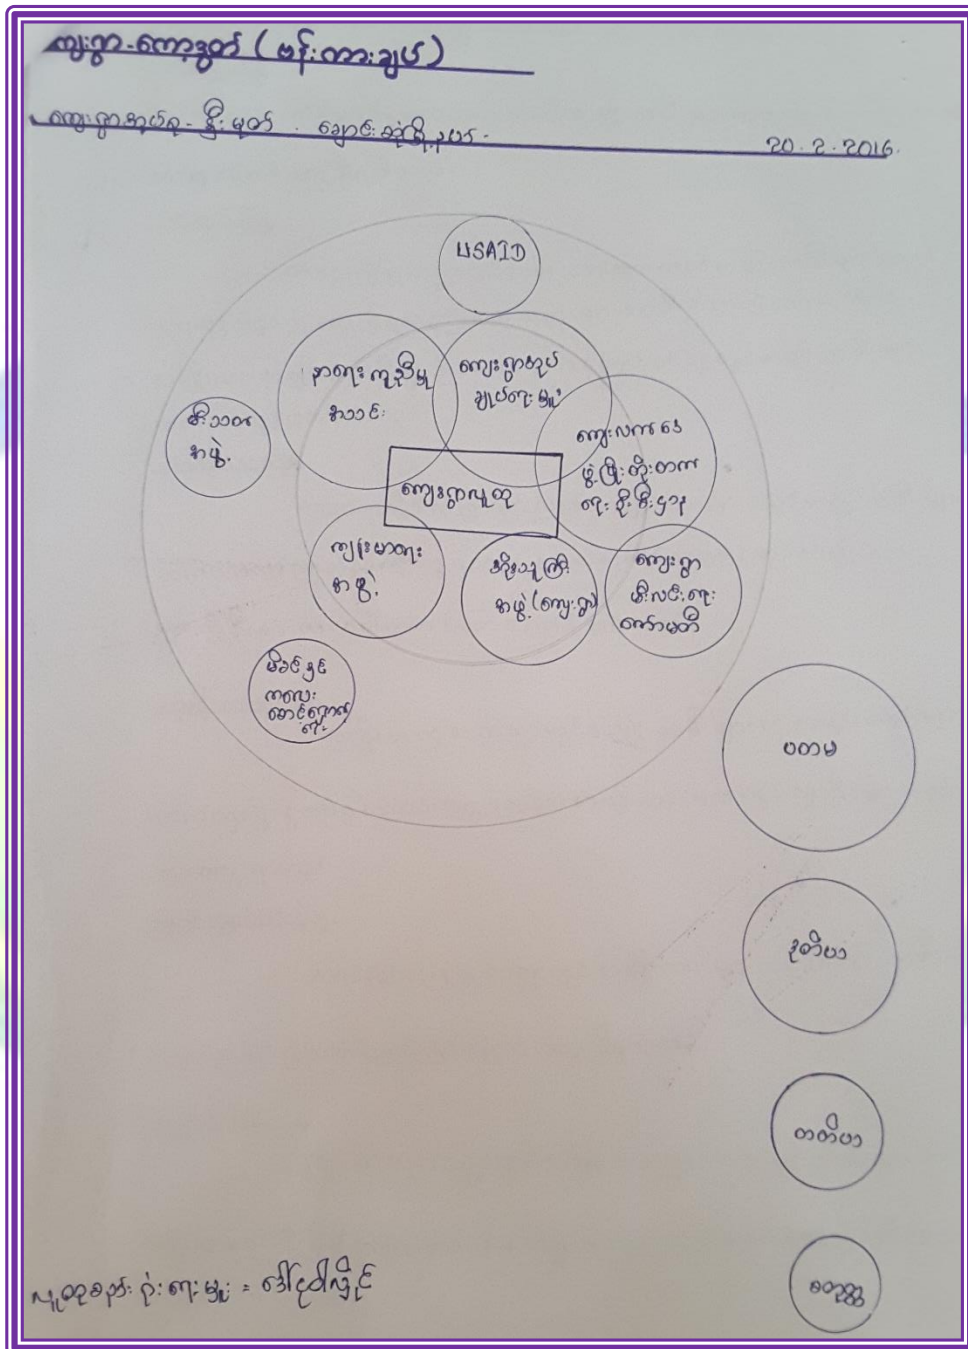 ကျေးရွာ-ကော့ဒွတ် (ဗန်းကားချပ်)
ကျေးရွာအုပ်စု - နှီးမုတ် . ချောင်းဆုံမြို့နယ်.
20.2.2016.
USAID
နာရေးကူညီမှု
အသင်း
ကျေးရွာအုပ်
ချုပ်ရေးမှူး
မီးသတ
အဖွဲ့.
ကျေးလက်ဒေ
ဖွံ့ဖြိုးတိုးတက
ရေးဦးစီးဌာန
ကျေးရွာလူထု
ကျန်းမာရေး
အဖွဲ့.
အိုးသူကြီး
အဖွဲ့ (ကျေးရွာ)
ကျေးရွာ
မီးလင်းရေး
ကော်မတီ
မိခင်နှင့်
ကလေး
စောင့်ရှောက်
ရေး
ပတမ
ဒုတိယ
တတိယ
စတုတ္ထ
လူထုစည်းရုံးရေးမှူး = ဒေါ်ငုဝါလှိုင်